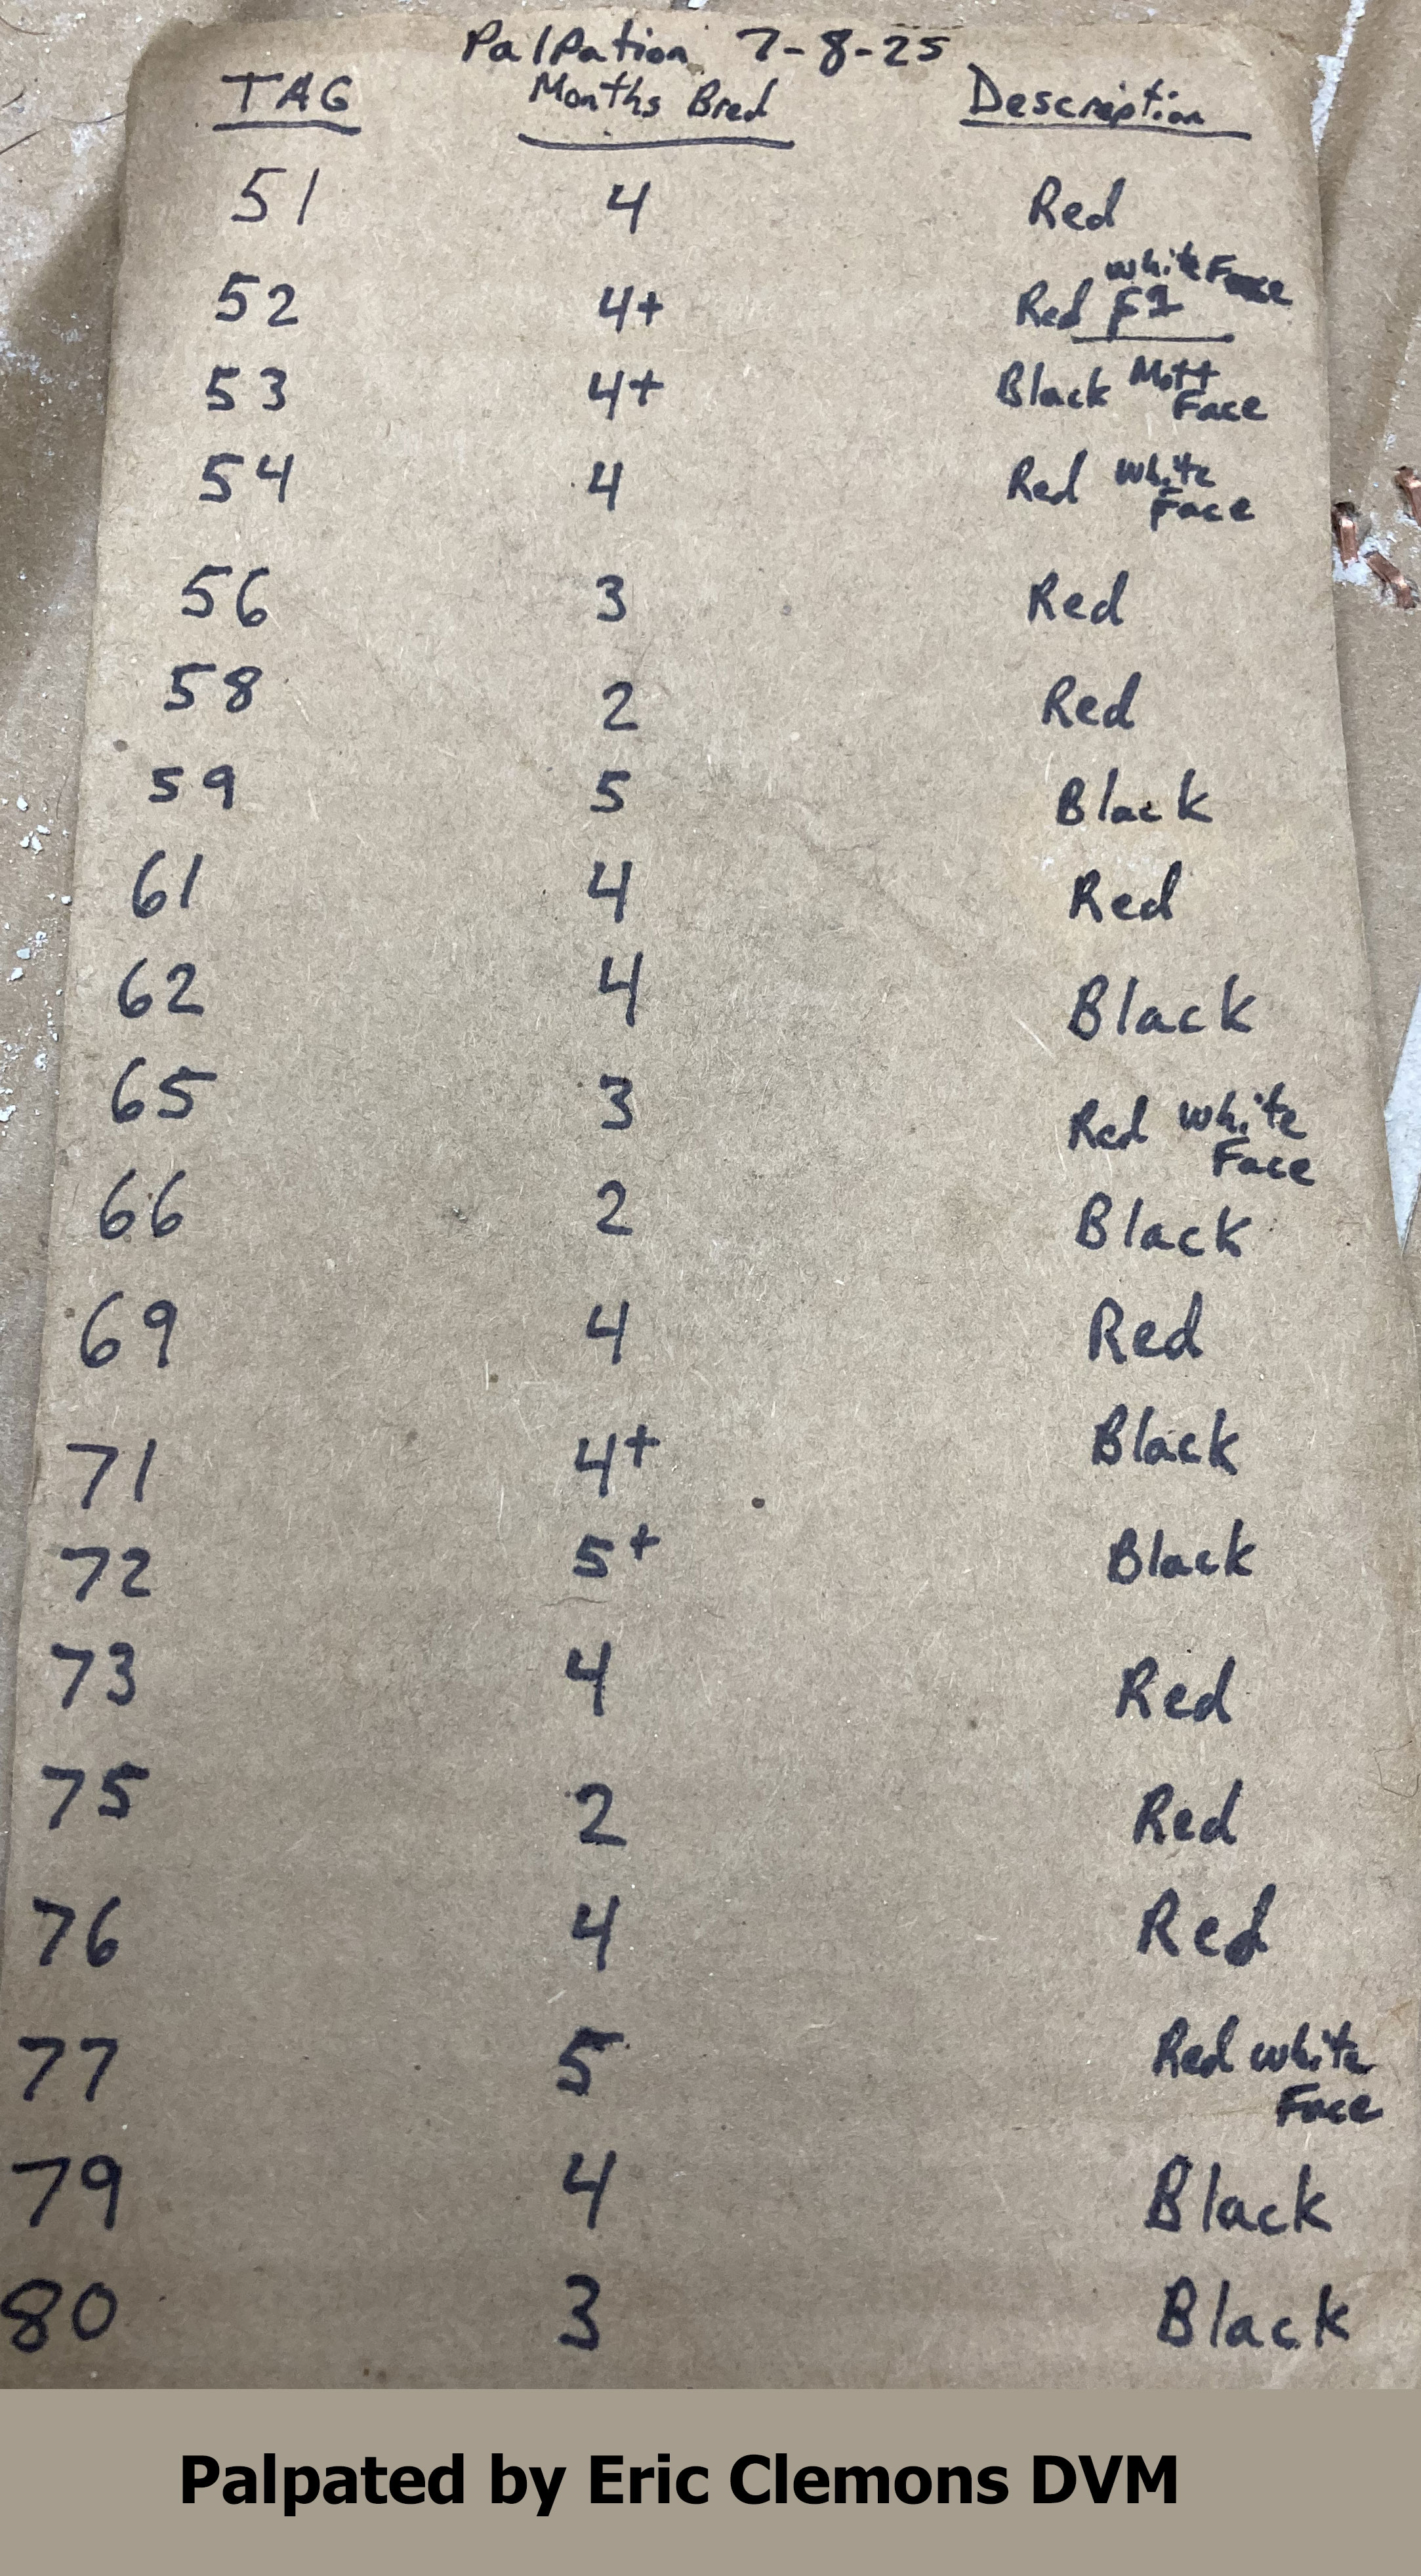 Palpation 7-8-25
TAG Months Bred Description
51 4 Red
52 4+ Red F1 White Face
53 4+ Black Mott Face
54 4 Red White Face
56 3 Red
58 2 Red
59 5 Black
61 4 Red
62 4 Black
65 3 Red White Face
66 2 Black
69 4 Red
71 4+ Black
72 5+ Black
73 4 Red
75 2 Red
76 4 Red
77 5 Red White Face
79 4 Black
80 3 Black
Palpated by Eric Clemons DVM